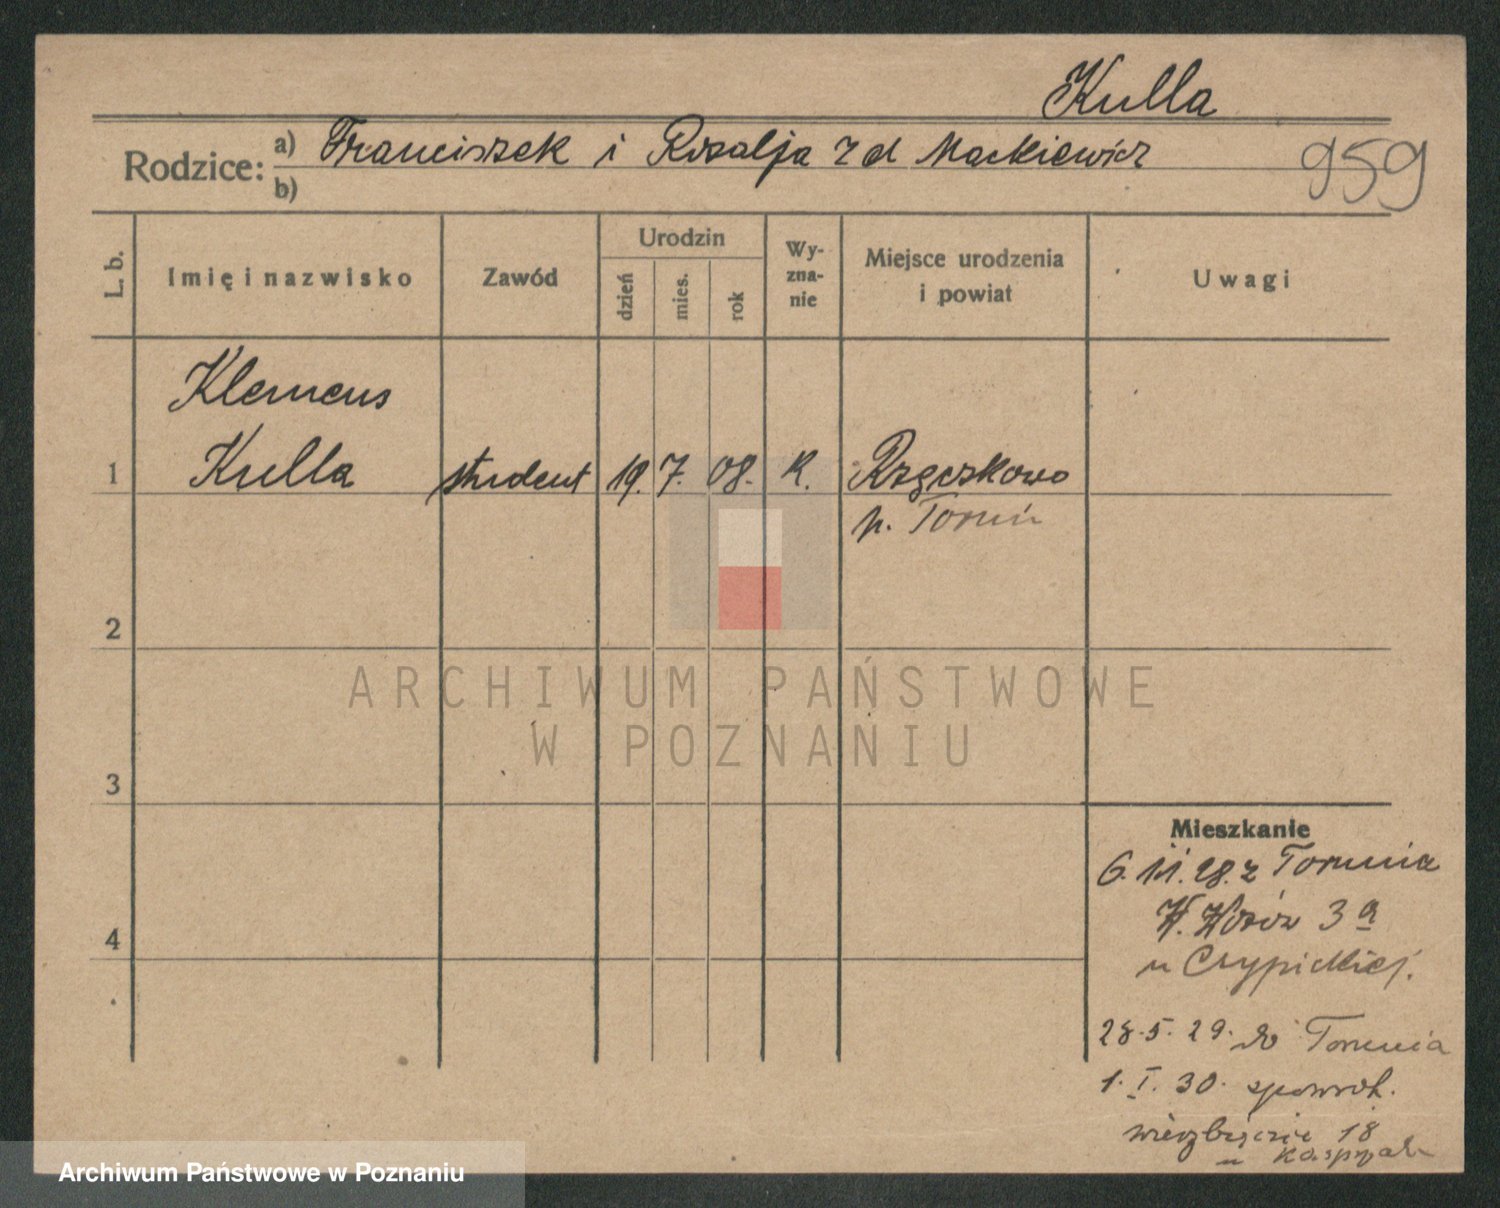 Kulla
Rodzice: a) Franciszek i Rozalja z d Mackiewicz
b)
959
L. b. Imię i nazwisko Zawód Urodzin dzień mies. rok Wy-zna-nie Miejsce urodzenia i powiat Uwagi
Klemens
1 Kulla student 19. 7. 08. K. Rzęczkowo
p. Toruń
2
ARCHIWUM PAŃSTWOWE
W POZNANIU
3
Mieszkanie
6. 11. 28. z Torunia
3 a
4
u
28. 5. 29. do Torunia
1. I. 30. spowrot.
18
u Kasprzak
Archiwum Państwowe w Poznaniu